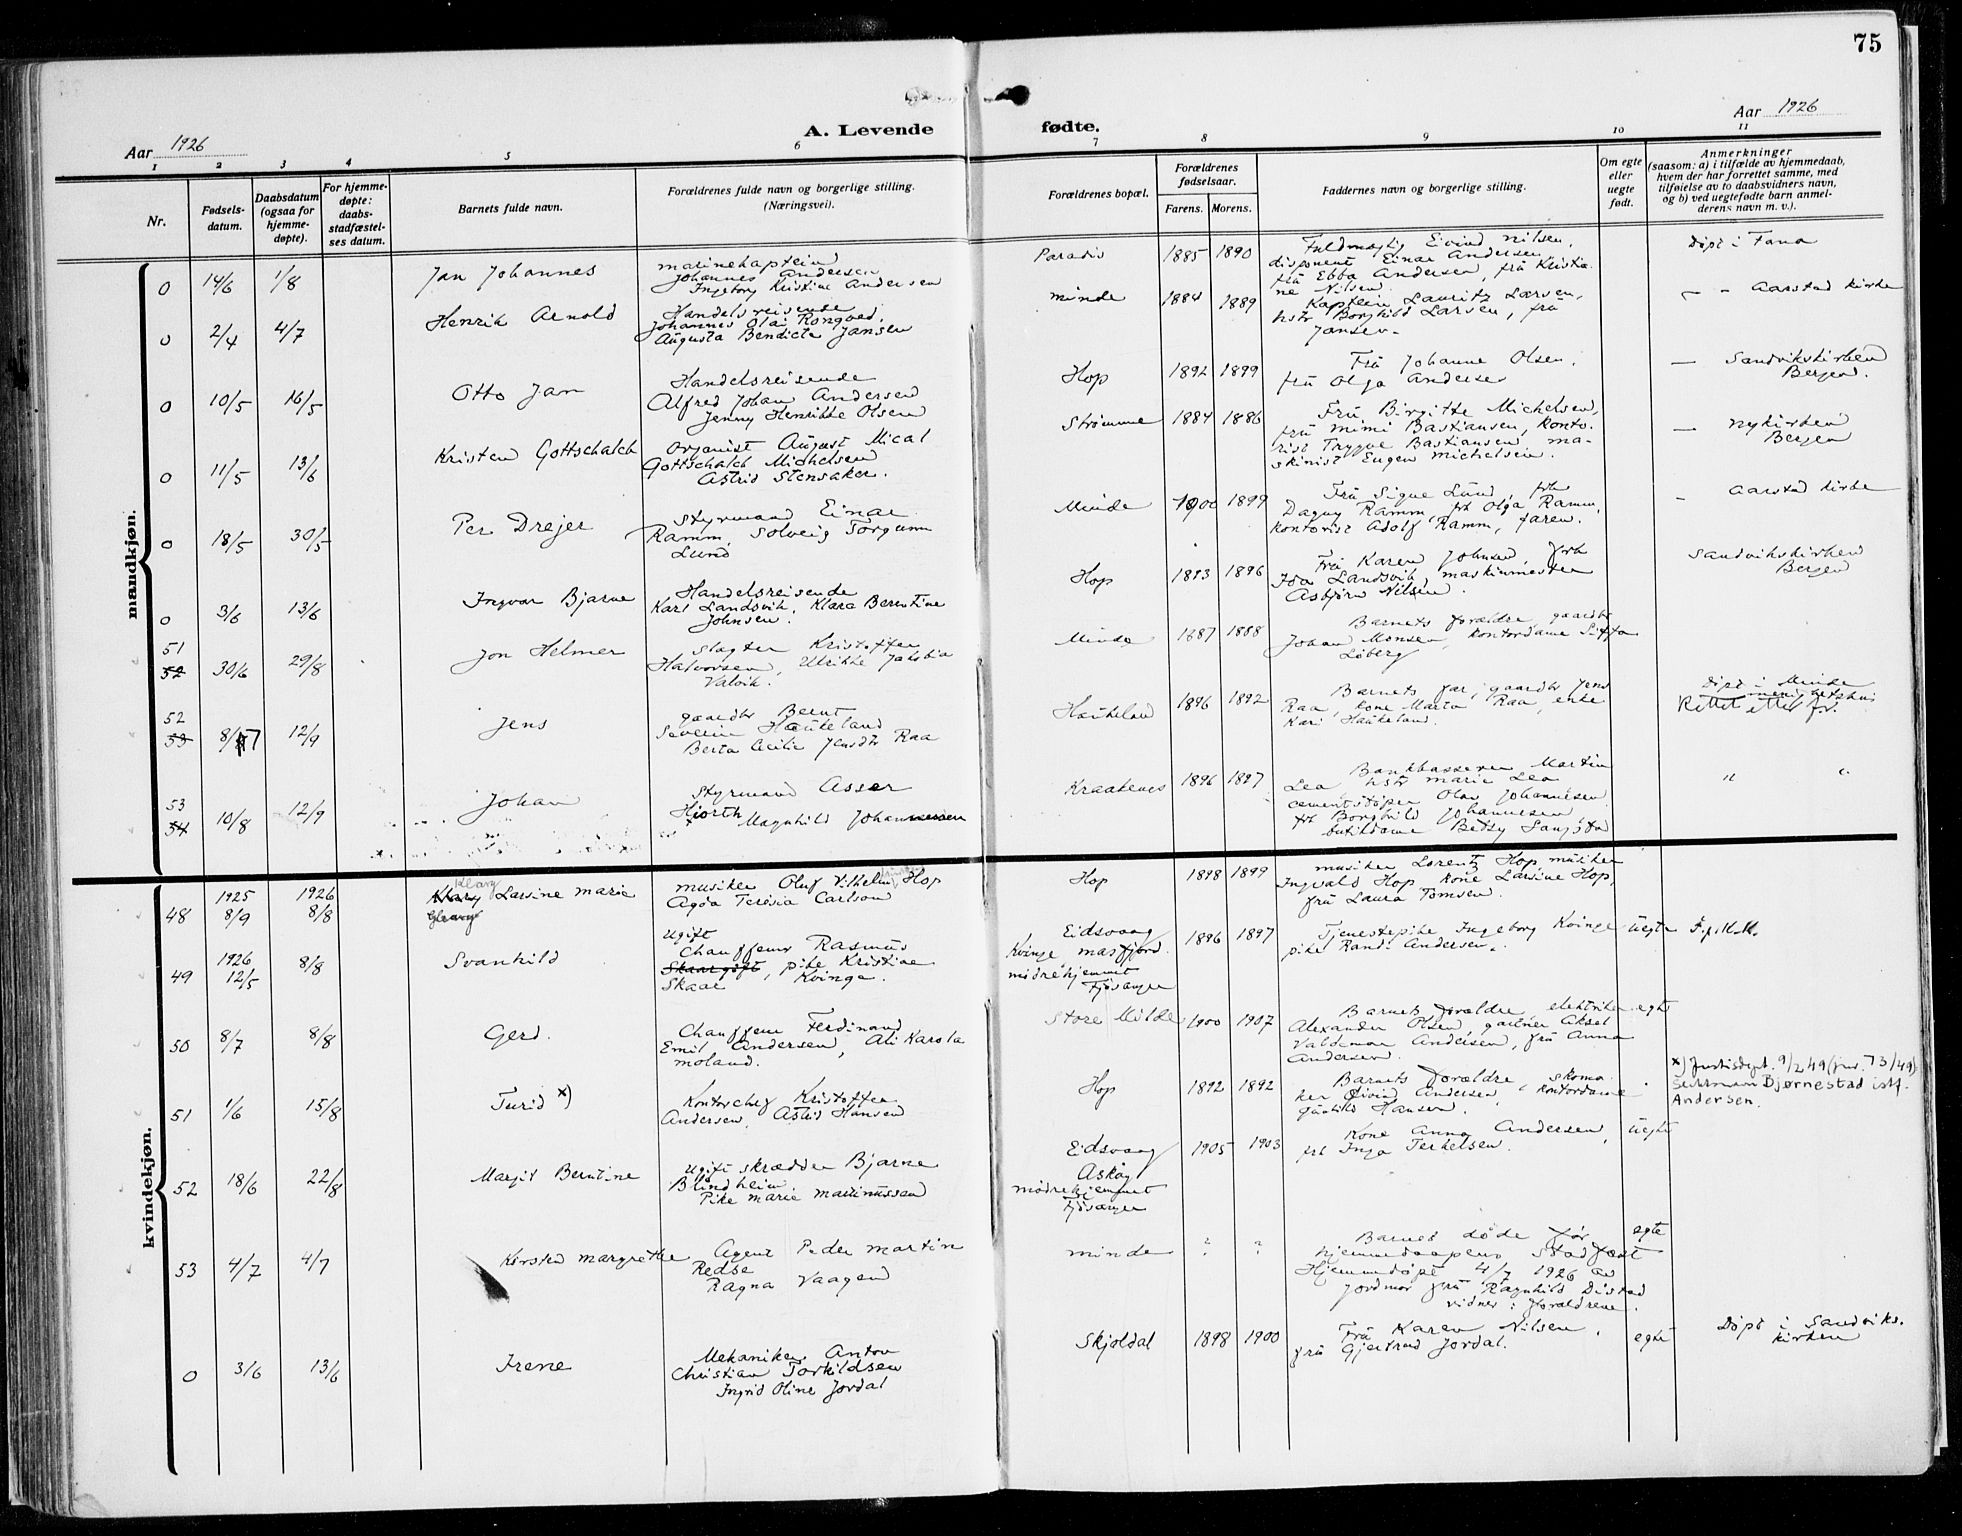 75
Aar 1926
A. Levende fødte.
Aar 1926
1 2 3 4 5 6 7 8 9 10 11
Nr.
Fødsels-
datum.
Daabsdatum
(ogsaa for
hjemme-
døpte).
For hjemme-
døpte:
daabs-
stadfæstel-
ses datum.
Barnets fulde navn.
Forældrenes fulde navn og borgerlige stilling.
(Næringsvei).
Forældrenes bopæl.
Forældrenes
fødselsaar.
Farens. Morens.
Faddernes navn og borgerlige stilling.
Om egte
eller
uegte
født.
Anmerkninger
(saasom: a) i tilfælde av hjemmedaab,
hvem der har forrettet samme, med
tilføielse av to daabsvidners navn,
og b) ved uegtefødte barn anmel-
derens navn m. v.).
mandkjøn.
0 14/6 1/8 Jan Johannes
marinekaptein
Johannes Andersen
Ingeborg Kristine Andersen
Paradis 1885 1890
Fuldmegtig Eivind Nilsen,
disponent Einar Andersen,
frü Ebba Andersen, frü Kristia-
ne Nilsen.
Døpt i Fana
0 2/4 4/7 Henrik Arnold
Handelsreisende
Johannes Olai Rongved,
Augusta Bendicte Jansen
Minde 1884 1889
Kaptein Lauritz Larsen,
hstr Borghild Larsen, frü
Jansen.
Aarstad kirke
0 10/5 16/5 Otto Jan
Handelsreisende
Alfred Johan Andersen
Jenny Henrikke Olsen
Hop 1892 1899
Frü Johanne Olsen,
frü Olga Andersen
— Sandvikskirken
Bergen.
0 11/5 13/6 Kristen Gottschalch
Organist August Mical
Gottschalch Michelsen
Astrid Stensaker.
Strømme 1884 1886
Frü Birgitte Michelsen,
frü Mimi Bastiansen, konto-
rist Trygve Bastiansen, ma-
skinist Eugen Michelsen.
— Nykirken
Bergen
0 18/5 30/5 Per Drejer
Styrmand Einar
Ramm, Solveig Torgunn
Lund
Minde 1900 1899
Frü Signe Lünd, frk
Dagny Ramm, frk Olga Ramm,
kontorist Adolf Ramm, faren.
— Aarstad kirke
0 3/6 13/6 Ingvar Bjarne
Handelsreisende
Karl Landsvik, Klara Berntine
Johnsen.
Hop 1893 1896
Frü Karen Johnsen, frk
Ida Landsvik, maskinmester
Asbjørn Nilsen.
Sandvikskirken
Bergen
51
52 30/6 29/8 Jon Helmer
Slagter Kristoffer
Halvorsen, Ulrikke Jakobia
Valvik.
Minde 1887 1888
Barnets forældre, gaardbr
Johan Monsen, kontordame
Søberg
52
53 8/7 12/9 Jens
gaardbr Bernt
Severin Haukeland
Berta Cecilie Jensdtr Raa
Haukeland 1896 1892
Barnets far, gaardbr Jens
Raa, kone Marta Raa, enke
Kari Haukeland.
Døpt i Minde
menighetshus
Rettet efter
53
54 10/8 12/9 Johan
Styrmand Asser
Hjorth
Magnhild Johannessen
Kraakenes 1896 1897
Bankkasserer Martin
Lea, hstr Marie Lea
cementstøper Olav Johannesen
frk Borghild Johannesen
butikdame Betsy
" "
kvindekjøn.
1925 1926
48 8/9 8/8 Klary Larsine Marie
Klary
musiker Oluf Vilhelm Hop
Agda Teresia Carlson
Hop 1898 1899
musiker Lorentz Hop, müsiker
Ingvald Hop, kone Larsine Hop,
frü Laura Tomsen.
1926
49 12/5 8/8 Svanhild
Ugift
Chauffeur Rasmus
Skaar, pike Kristine
Kvinge.
Eidsvaag
Kvinge, Masfjord.
mødrehjemmet
Fjøsanger
1896 1897
Tjenestepike Ingeborg Kvinge
pike Randi Andersen.
uegte F.p.K.K.
50 8/7 8/8 Gerd.
Chauffeur Ferdinand
Emil Andersen, Ali Karola
Moland.
Store Milde 1900 1907
Barnets forældre, elektriker
Alexander Olsen, gartner Aksel
Valdemar Andersen, frü Anna
Andersen.
egte
51 1/6 15/8 Turid x)
Kontorchef Kristoffer
Andersen, Astrid Hansen
Hop 1892 1892
Barnets forældre, skoma-
ker Øivind Andersen, kontordame
Hansen.
x) Justisdept. 9/2 49 (jnr. 73/49)
Bjørnestad istf.
Andersen.
52 18/6 22/8 Marjit Berntine
Ugift skrædder Bjarne
Blindheim
Pike Marie Martinussen
Eidsvaag
Askøy
mødrehjemmet
Fjøsanger
1905 1903
Kone Anna Andersen,
frk Inga Terkelsen.
uegte
53 4/7 4/7 Kirsten Margrethe
Agent Peder Martin
Redse
Ragna Vaagen
Minde ? ?
Barnet døde før
hjemmedaapens stadfæst
Hjemmedøpt 4/7 1926 av
jordmor frü Ragnhild
vidner: forældrene.
egte
0 3/6 13/6 Irene
Mekaniker Anton
Christian Torkildsen
Ingrid Oline Jordal
Skjoldal 1898 1900
Frü Karen Nilsen,
frü Gjertrud Jordal.
egte
Døpt i Sandviks-
kirken